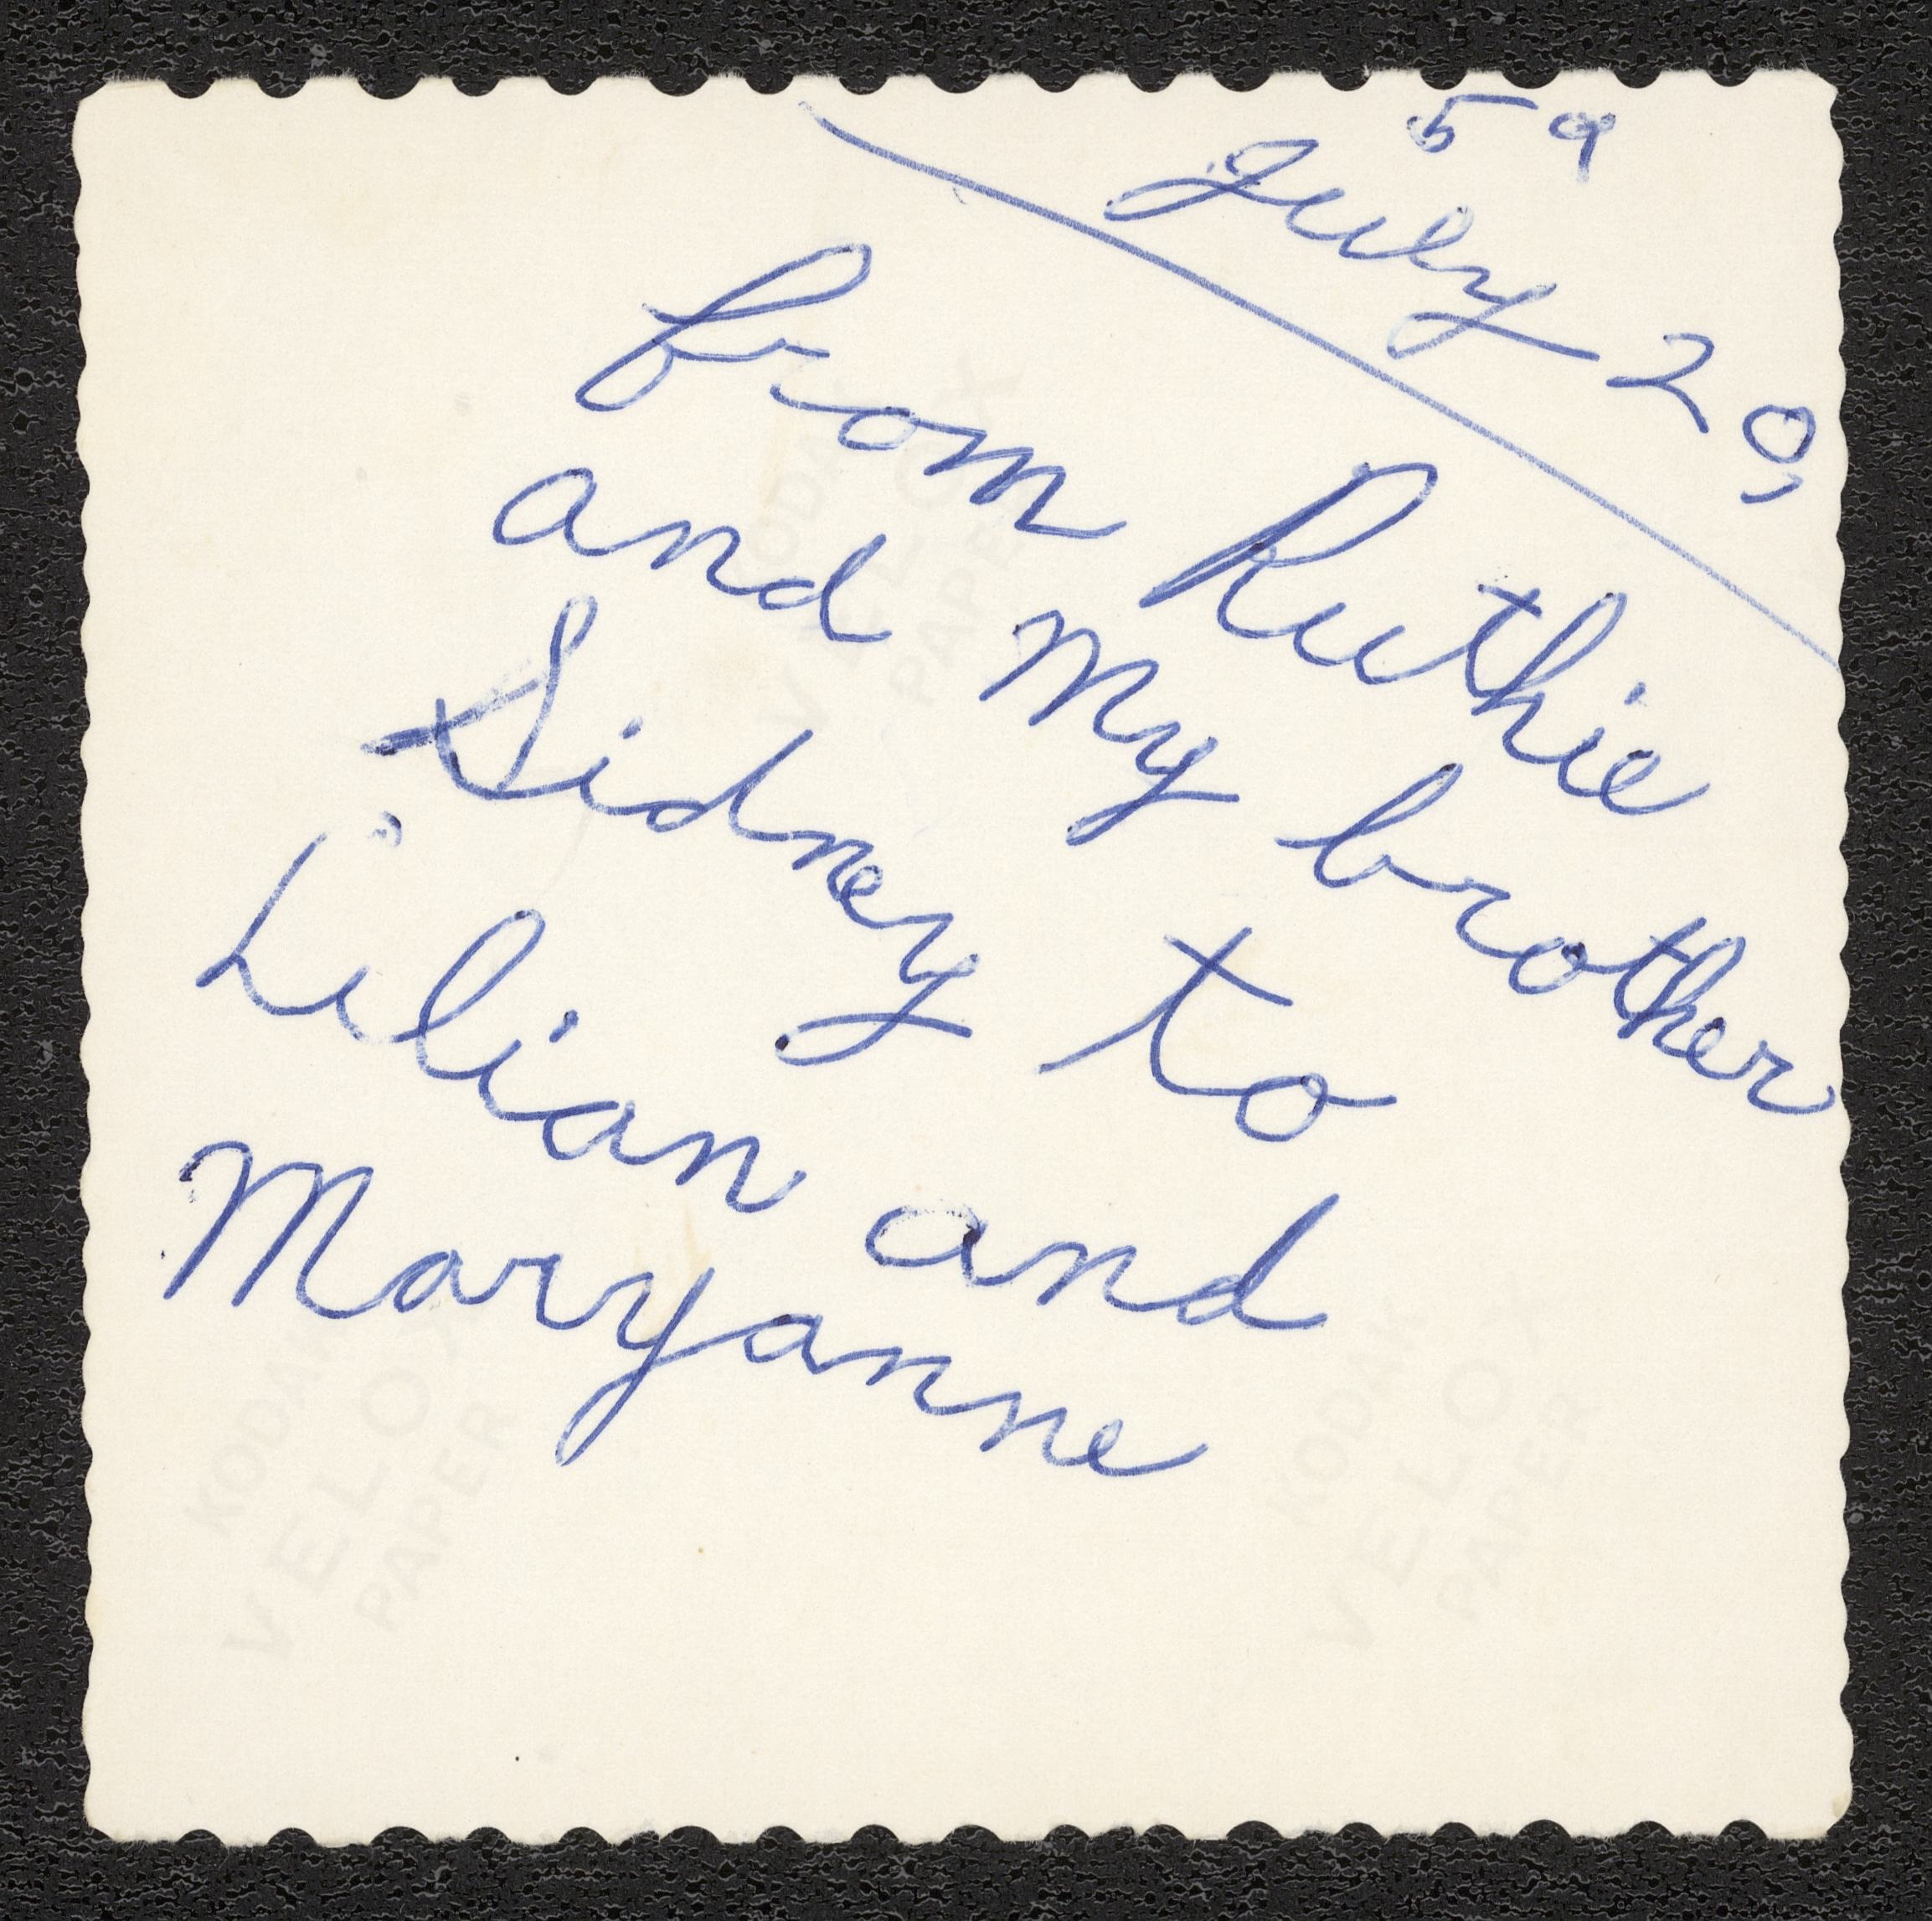 July 20,
59
from Ruthie
and my brother
Sidney to
Lilian and
Maryanne
KODAK
VELOX
PAPER
KODAK
VELOX
PAPER
KODAK
VELOX
PAPER